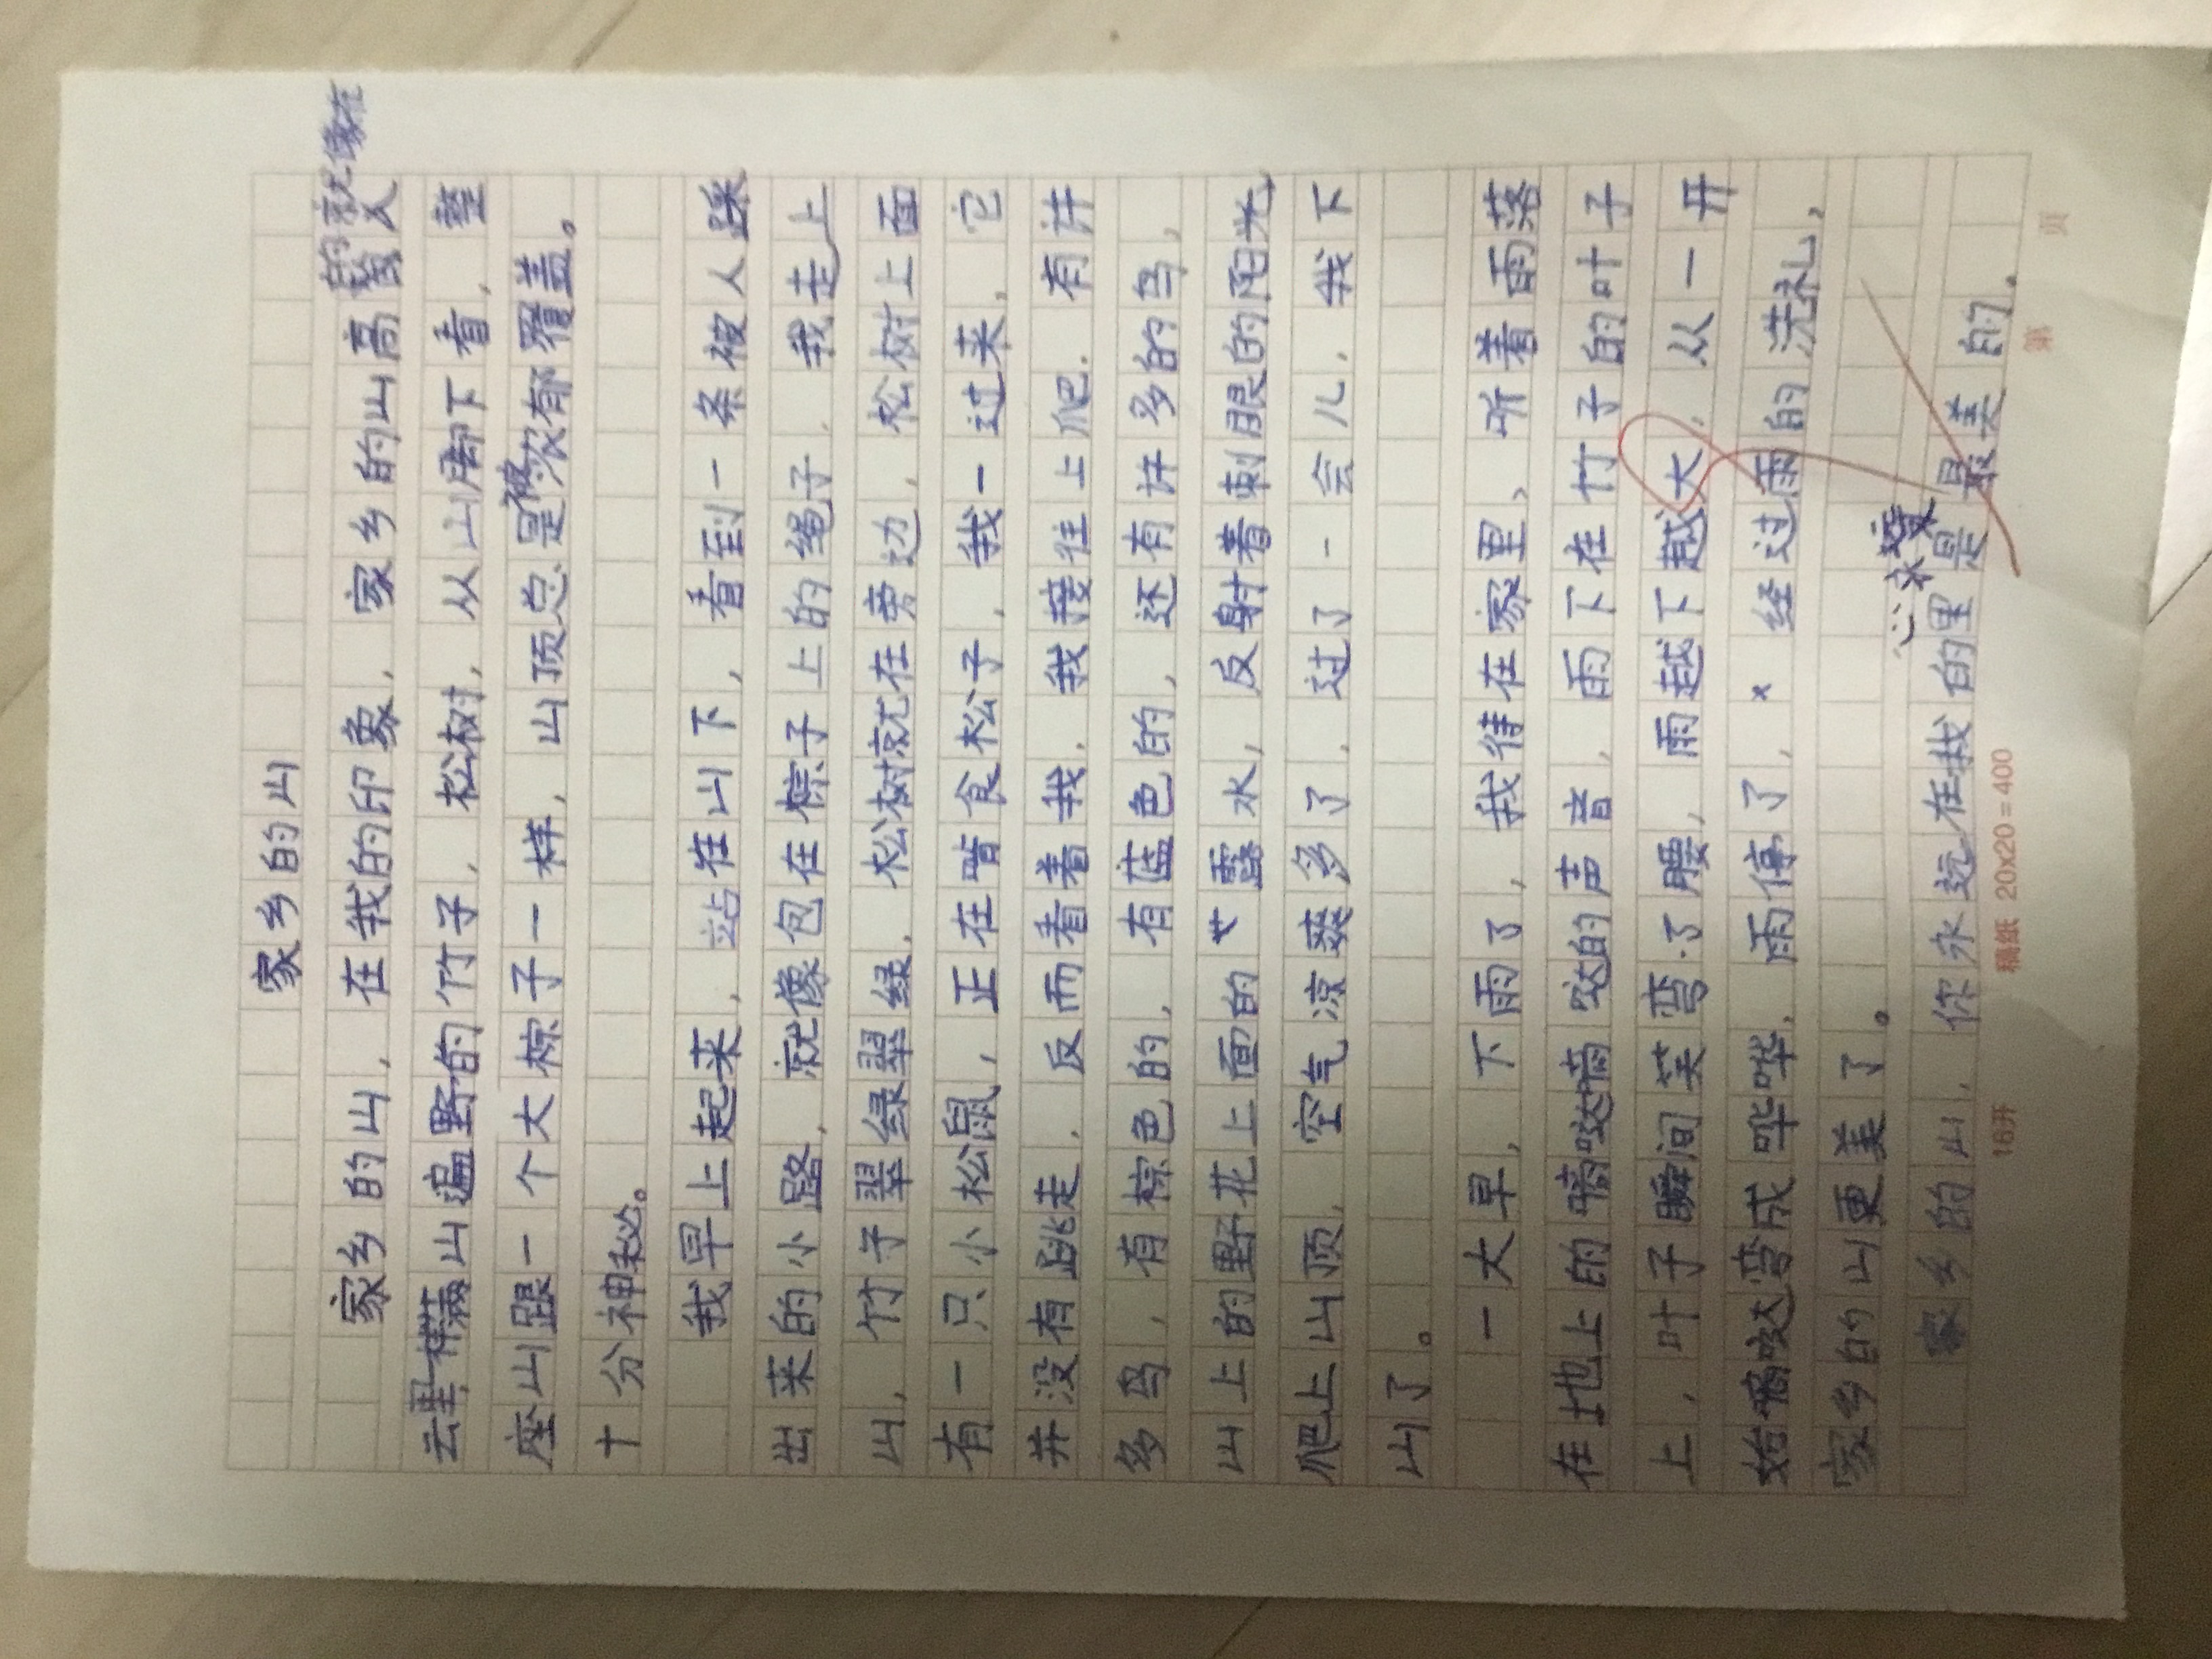 家乡的山
家乡的山,在我的印象,家乡的山高的就像在
云里一样满山遍野的竹子,松树,从山脚下看,整
座山跟一个大棕子一样,山顶总是被浓郁覆盖。
十分神秘。
我早上起来,站在山下,看到一条被人踩
出来的小路,就像包在棕子上的绳子,我走上
山,竹子翠绿翠绿,松树就在旁边,松树上面
有一只小松鼠,正在啃食松子,我一过来,它
并没有跳走,反而看着我,我接往上爬,有许
多鸟,有棕色的,有蓝色的,还有许多的鸟,
山上的野花上面的露水,反射着刺眼的阳光
爬上山顶,空气凉爽多了,过了一会儿,我下
山了。
一大早,下雨了,我待在家里、听着雨落
在地上的嘀哒嘀哒的声音,雨下在竹子的叶子
上,叶子瞬间笑弯了腰,雨越下越大,从一开
始嘀哒弯成哗哗,雨停了,经过雨的洗礼,
家乡的山更美了。
家乡的山,你永远在我的心里是最美的.
16开 稿紙 20x20=400 第 页